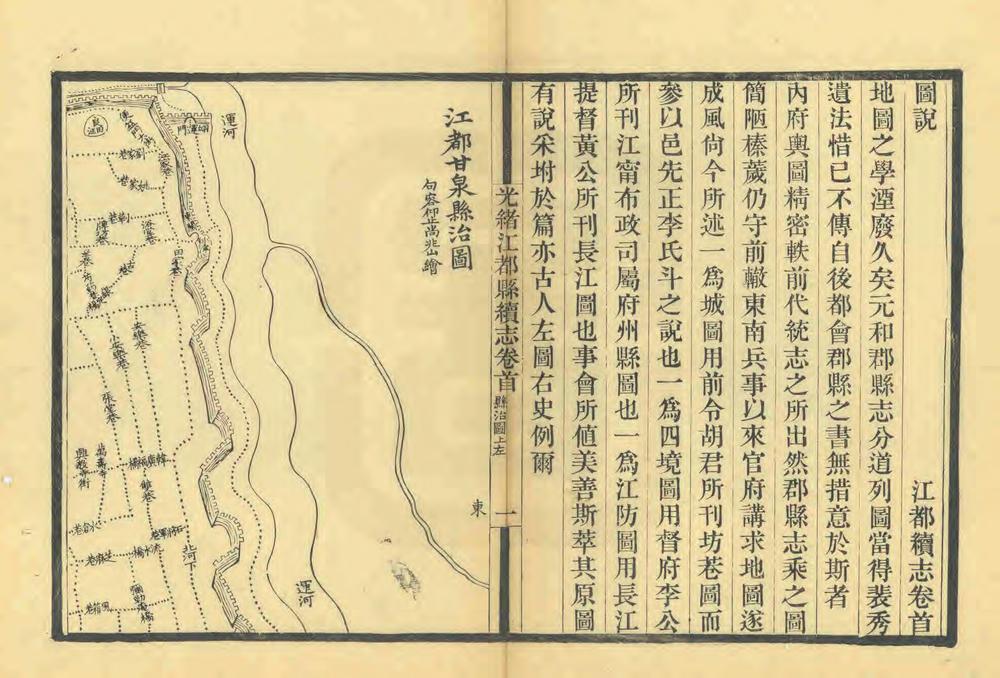 圖說
江都續志卷首
地圖之學湮廢久矣元和郡縣志分道列圖當得裴秀
遺法惜已不傳自後都會郡縣之書無措意於斯者
內府輿圖精密軼前代統志之所出然郡縣志乘之圖
簡陋榛蕪仍守前轍東南兵事以來官府講求地圖遂
成風尙今所述一爲城圖用前令胡君所刊坊巷圖而
參以邑先正李氏斗之說也一爲四境圖用督府李公
所刊江甯布政司屬府州縣圖也一爲江防圖用長江
提督黃公所刊長江圖也事會所値美善斯萃其原圖
有說采坿於篇亦古人左圖右史例爾
光緒江都縣續志卷首
縣治圖上左
一
江都甘泉縣治圖
句容仰止尚兆山繪
東
運河
運河
田家巷
安樂巷
小安樂巷
張家巷
雙巷
萬壽寺
興教寺街
石將軍巷
芝麻巷
北河下
彌勒菴橋